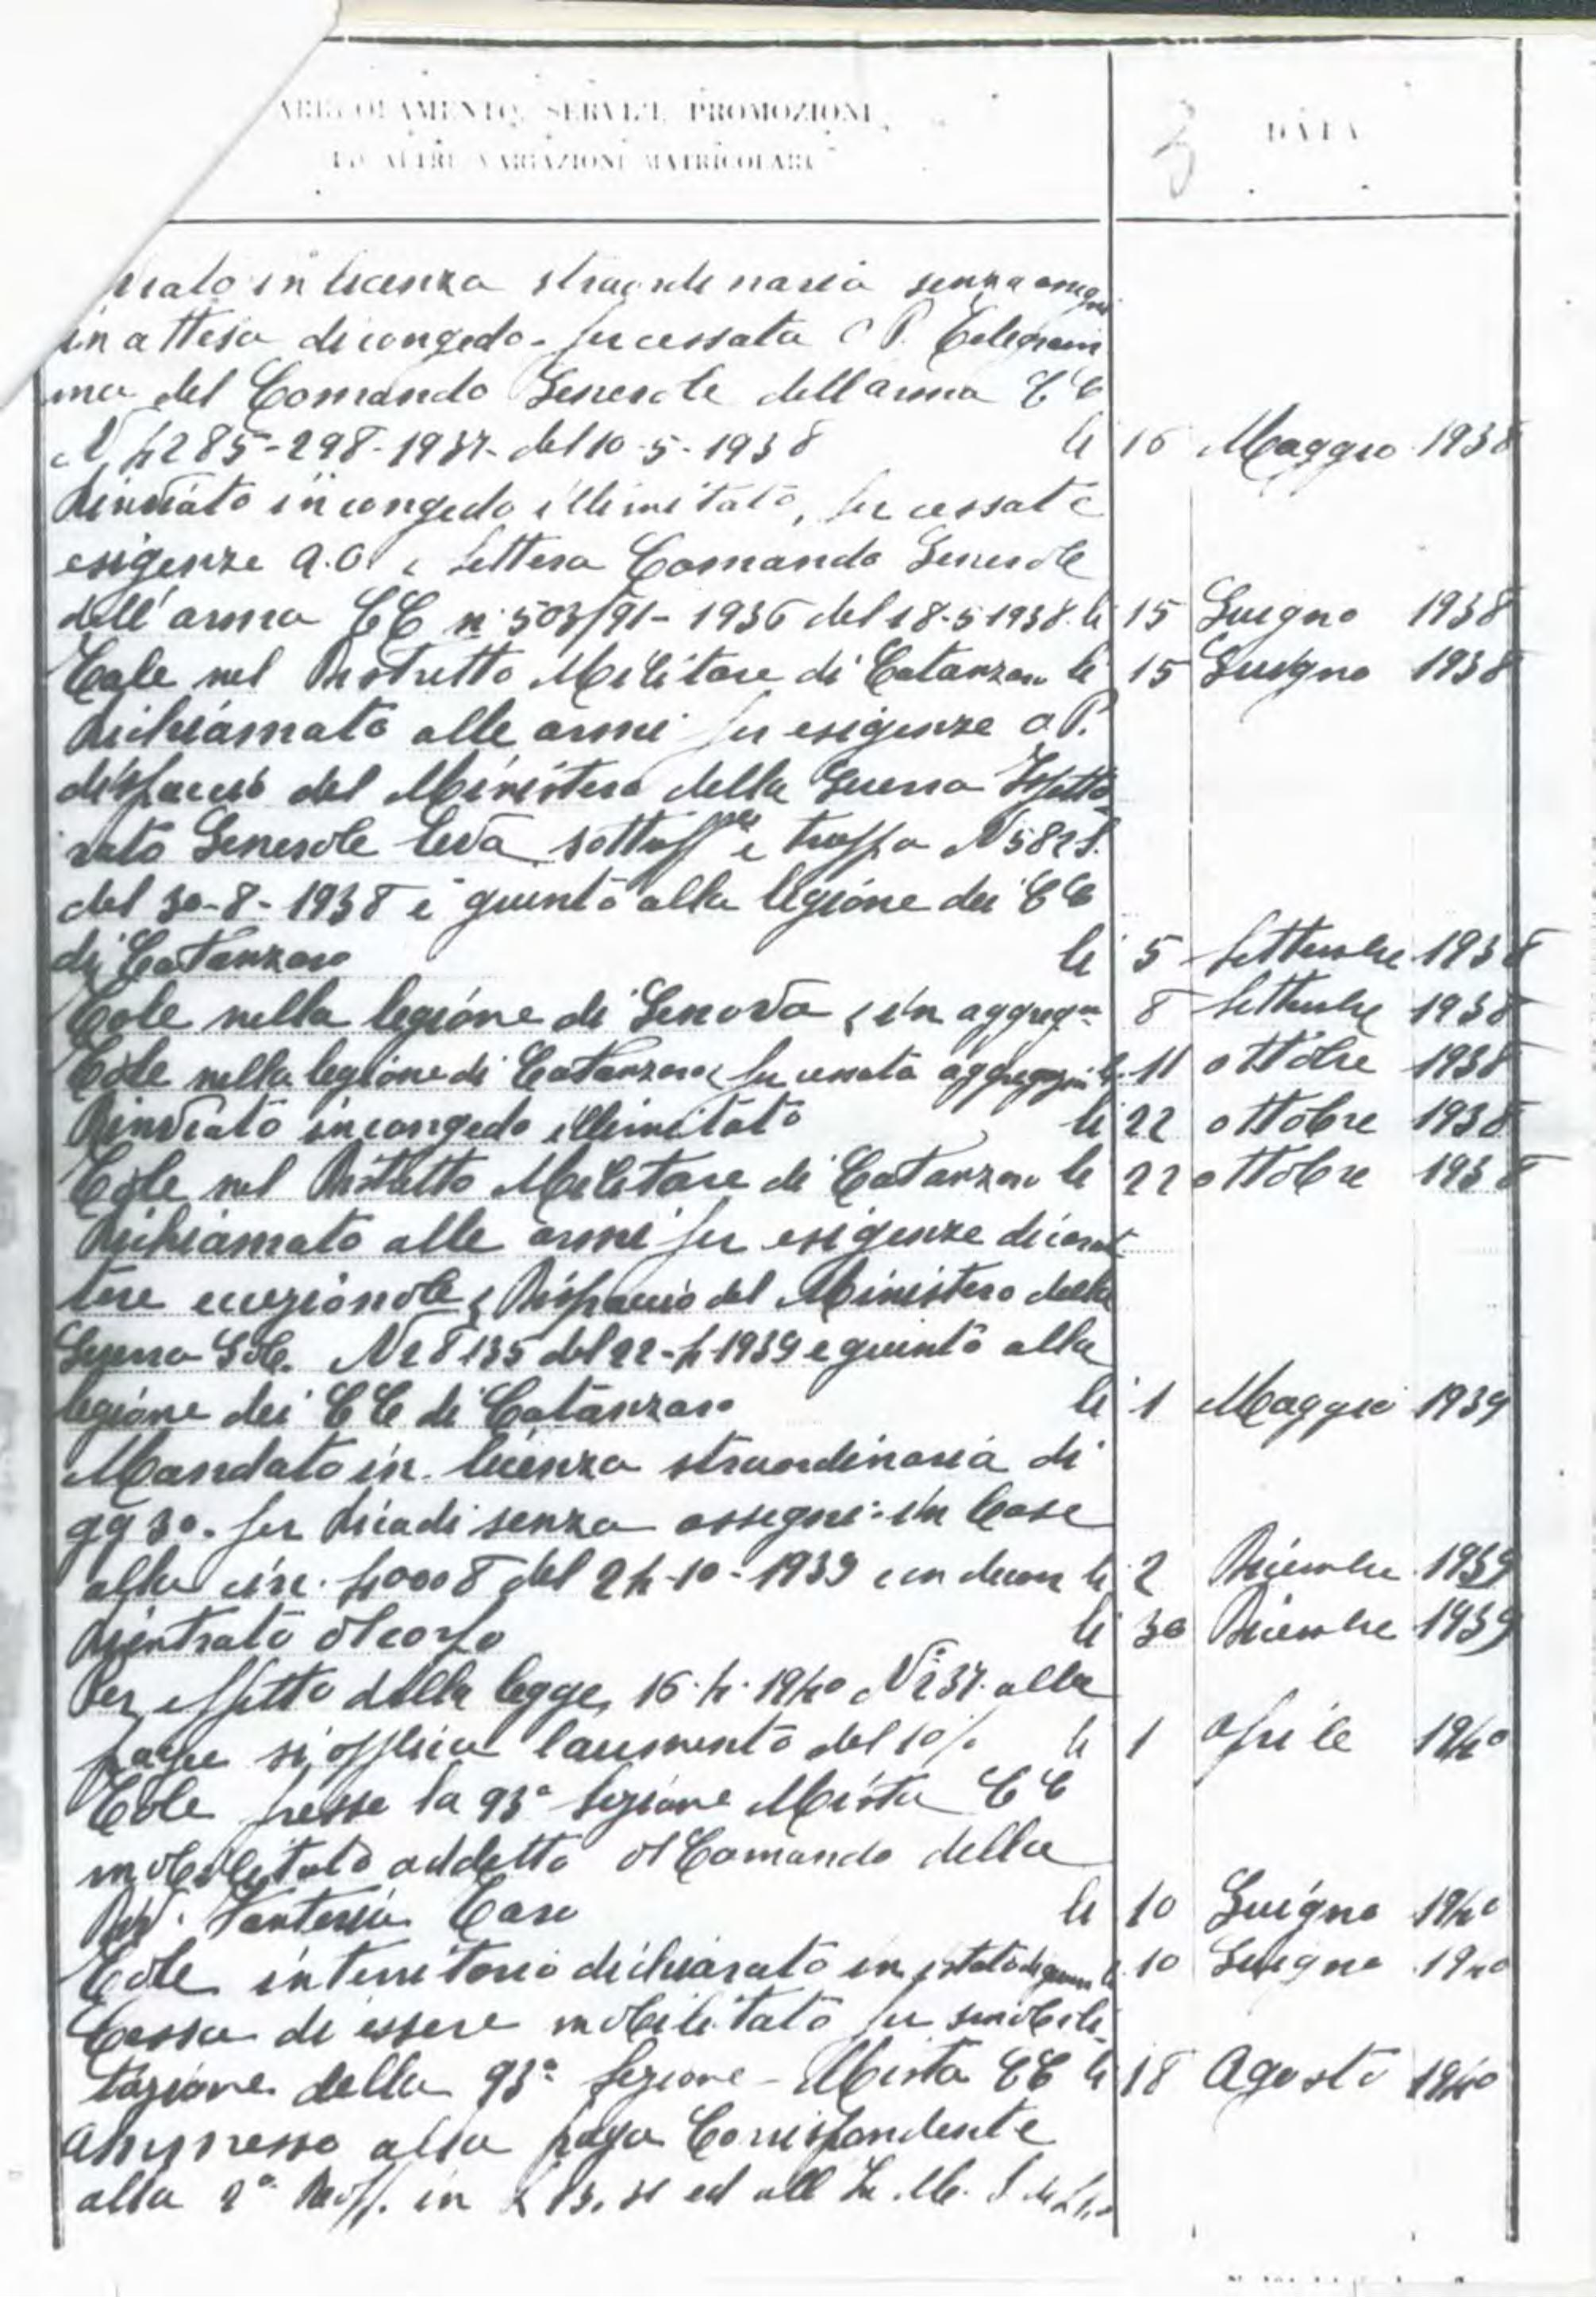 ARRUOLAMENTO, SERVIZI, PROMOZIONI
ED ALTRE VARIAZIONI MATRICOLARI
3
DATA
in licenza straordinaria senza assegni
in attesa di congedo - per cessata Telegram
ma del Comando Generale dell'arma CC
N 4285-298-1937- del 10-5-1938 li 16 Maggio 1938
Rinviato in congedo illimitato, per cessate
esigenze A.O. e lettera Comando Generale
dell'arma CC n. 503/91-1936 del 18-5-1938. li 15 Giugno 1938
Tale nel Distretto Militare di Catanzaro li 15 Giugno 1938
Richiamato alle armi per esigenze
dispaccio del Ministero della Guerra Ispetto
rato Generale leva sottuff.li e truppa N
del 30-8-1938 e giunto alla legione dei CC
di Catanzaro li 5 Settembre 1938
Tale nella legione di Genova in aggreg.ne 8 Settembre 1938
Tale nella legione di Catanzaro per cessata li 11 ottobre 1938
Rinviato in congedo illimitato li 22 ottobre 1938
Tale nel Distretto Militare di Catanzaro li 22 ottobre 1938
Richiamato alle armi per esigenze di carat
tere eccezionale Dispaccio del Ministero della
Guerra N 28135 del 22-4-1939 e giunto alla
legione dei CC di Catanzaro li 1 Maggio 1939
Mandato in licenza straordinaria di
gg 30. senza assegni in base
alla circ. 40008 del 24-10-1939 li 2 Dicembre 1939
Rientrato al corpo li 30 Dicembre 1939
Per effetto della legge, 16-4-1940 N 237 alla
paga si applica l'aumento del 10% li 1 aprile 1940
Tale presso la 93ª Sezione Mista CC
mobilitato addetto al Comando della
Div. Fanteria li 10 Giugno 1940
Tale in territorio dichiarato in stato di guerra li 10 Giugno 1940
Cessa di essere mobilitato per smobili-
tazione della 93ª Sezione - Mista CC li 18 Agosto 1940
Ammesso alla paga Corrispondente
alla 2ª Raff. in ed all